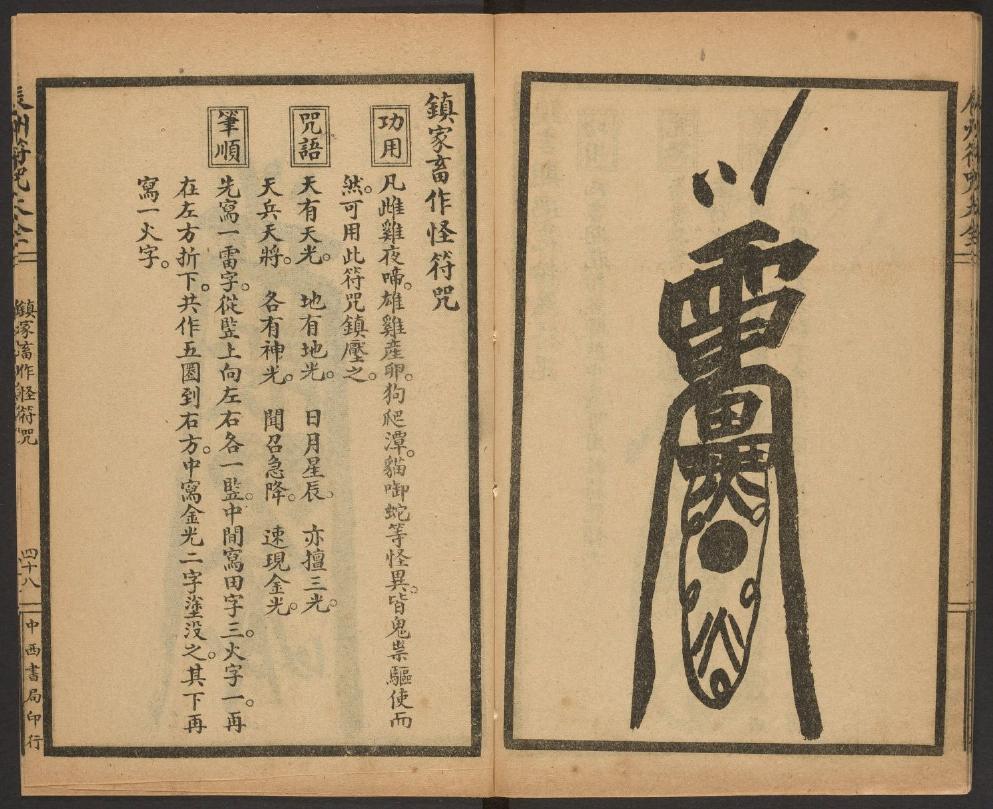 鎮家畜作怪符咒
功用
凡雌雞夜啼。雄雞產卵。狗爬潭。貓啣蛇等怪異。皆鬼祟驅使而
然。可用此符咒鎮壓之。
咒語
天有天光。 地有地光。 日月星辰、 亦擅三光。
天兵天將。 各有神光。 聞召急降。 速現金光。
筆順
先寫一雷字。從監上向左右各一監。中間寫田字三。火字一。再
在左方折下。共作五圈到右方。中寫金光二字塗没之。其下再
寫一火字。
鎮家畜作怪符咒
四十八
中西書局印行